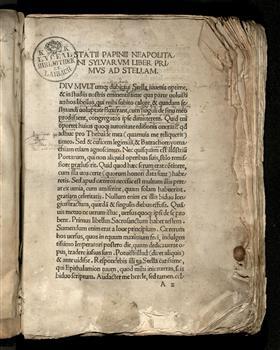 STATII PAPINII NEAPOLITA
NI SYLVARUM LIBER PRI
MVS AD STELLAM.
K. K.
LYCEAL
BIBLIOTHEK
LAIBACH
DIV MVLT
dubitaui Stella iuuenis optime,
& in studiis nostris eminentissime qua parte uoluisti
an hos libellos, qui mihi subito calore, & quadam fe
stinandi uoluptate fluxerunt, cum singuli de sinu meo
congregatos ipse dimitterem. Quid
huius quoque autoritate editionis
adhuc pro Thebaide mea (quamuis me
) timeo. Sed & culicem legimus, & Batrachomyoma
chiam etiam agnoscimus. Nec quisquam est illustrium
Poetarum, qui non aliquid operibus suis stilo remis
siore præluserit. Quid quod hæc serum erat
cum illa
Sed apud cæteros necesse est multum illis pereat
ex uenia, cum amiserint, quam solam habuerunt,
gratiam celeritatis. Nullum enim ex illis biduo lon
gius tractum, quædam & in singulis diebus effusa. Quam
timeo ne uerum istuc, uersus quoque ipsi de se pro
bent. Primus libellus Sacrosanctum habet testem.
Sumendum enim erat a Ioue principium. Centum
hos uersus, quos in equum maximum feci, indulgen
tissimo Imperatori postero die, quam dedicauerat o
pus, tradere iussus sum. Potuisti illud
& ante uidisse. Respondebis illi tu Stella carissime,
qui Epithalamion tuum, quod mihi iniunxeras, scis
biduo scriptum. Audacter me hercle, sed tamen
A ii